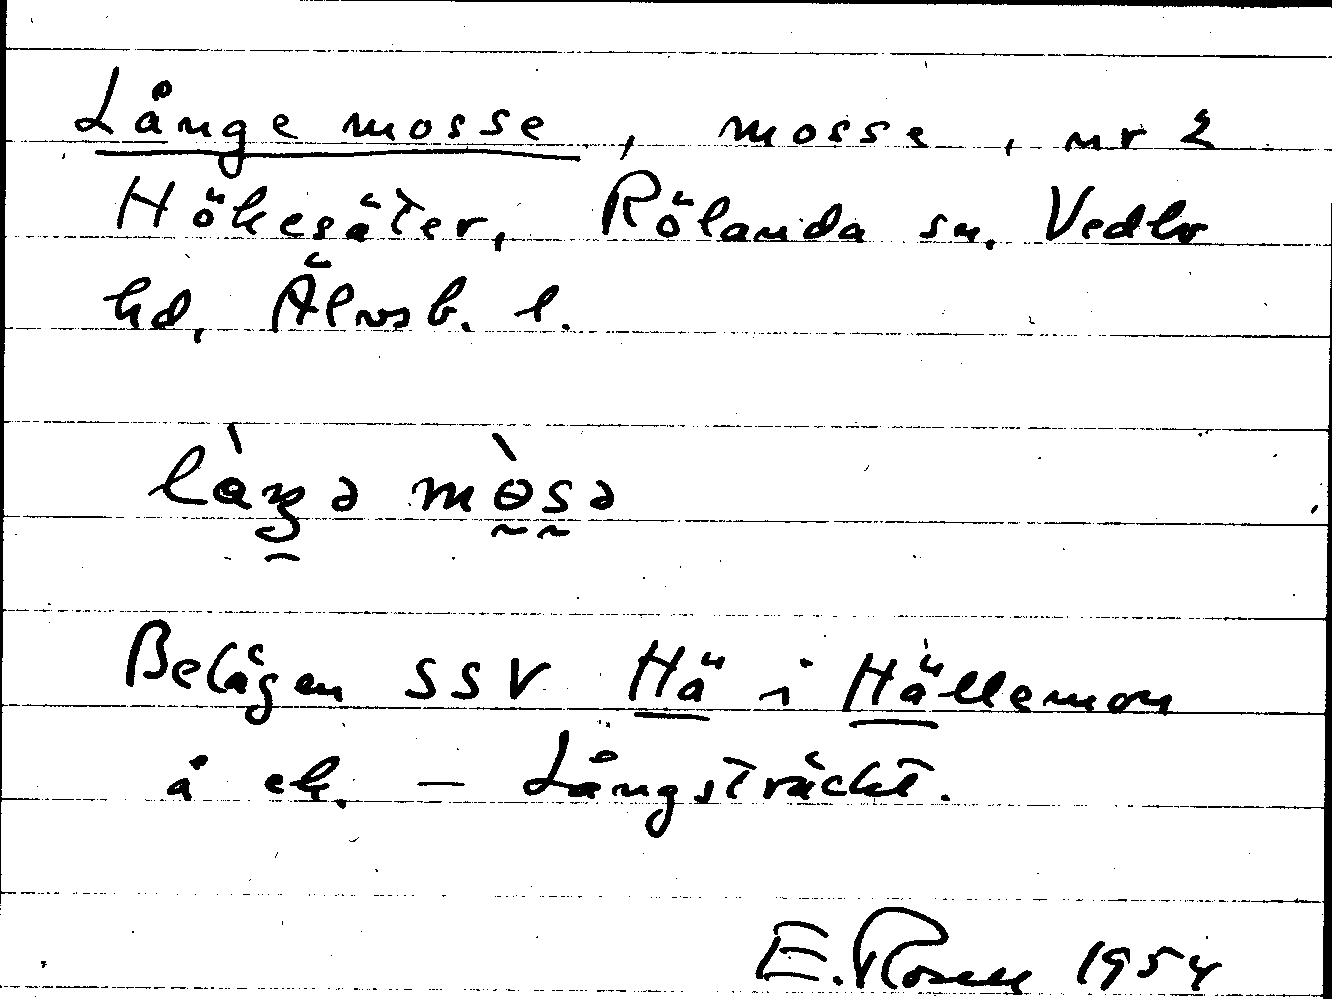 Långe mosse, mosse, nr 2
Hökesäter, Rölanda sn. Vedbo
hd, Älvsb. l.
Belägen SSV Hä i Hällemon
å ek. – Långsträckt.
E. Rosen 1954